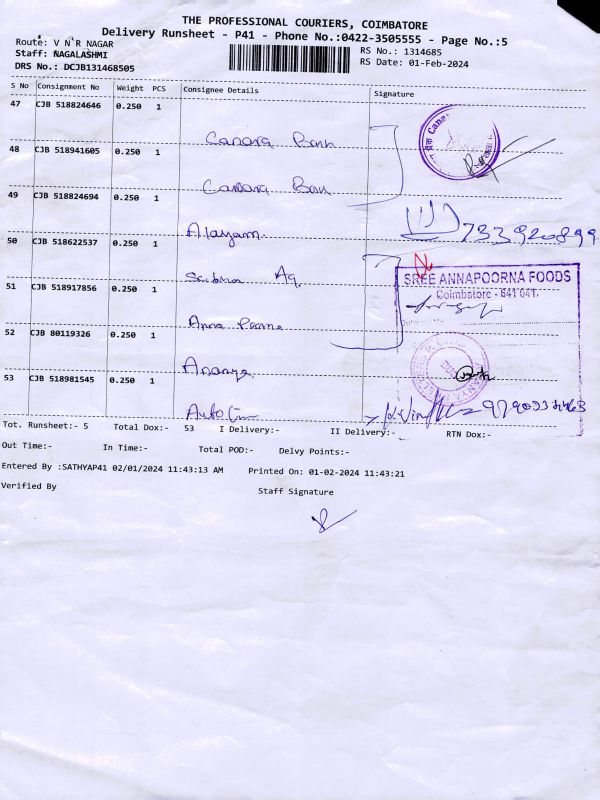 THE PROFESSIONAL COURIERS, COIMBATORE
Delivery Runsheet - P41 - Phone No.:0422-3505555 - Page No.:5
Route: V N R NAGAR
RS No.: 1314685
Staff: NAGALASHMI
RS Date: 01-Feb-2024
DRS No.: DCJB131468505
S No Consignment No Weight PCS Consignee Details Signature
47 CJB 518824646 0.250 1
Canara Bnk
48 CJB 518941605 0.250 1
Canara Bnk
49 CJB 518824694 0.250 1
Alayam
7339920899
50 CJB 518622537 0.250 1
Ag
SREE ANNAPOORNA FOODS
Coimbatore - 641 041.
51 CJB 518917856 0.250 1
Anna Poorna
52 CJB 80119326 0.250 1
Ananya
53 CJB 518981545 0.250 1
Auto
Tot. Runsheet:- 5 Total Dox:- 53 I Delivery:- II Delivery:- RTN Dox:-
Out Time:- In Time:- Total POD:- Delvy Points:-
Entered By :SATHYAP41 02/01/2024 11:43:13 AM Printed On: 01-02-2024 11:43:21
Verified By
Staff Signature